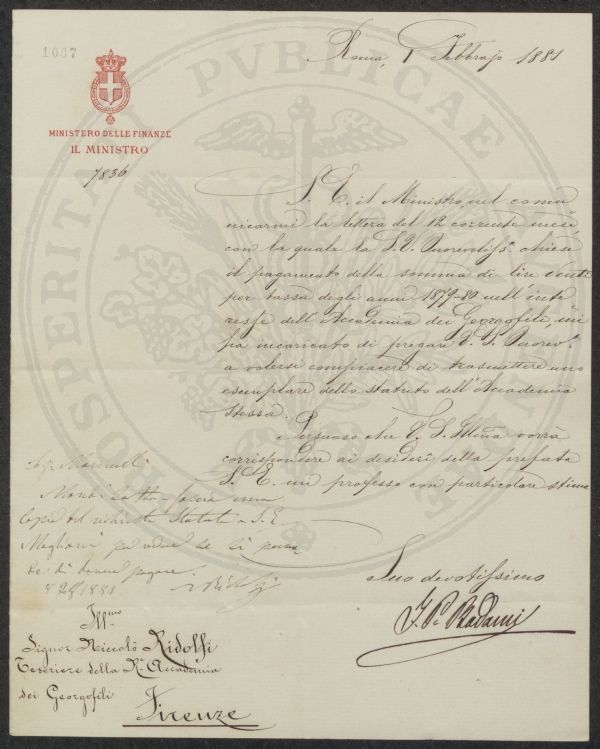 1007
Roma, 1 Febbrajo 1881
MINISTERO DELLE FINANZE
IL MINISTRO
7836
S. E. il Ministro, nel comu
nicarmi la lettera del 12 corrente mese,
con la quale la S. V. Onorevoliss.ª chiese
il pagamento della somma di lire venti
per tassa degli anni 1879-80 nell'inte
resse dell'Accademia dei Georgofili, mi
ha incaricato di pregare V. S. Onorev.ª
a volersi compiacere di trasmettere uno
esemplare dello statuto dell'Accademia
stessa.
Persuaso che V. S. Illma vorrà
corrispondere ai desideri della prefata
S. E. mi professo con particolare stima
copia del richiesto Statuto a S. E.
Magliani
di dovere pagare.
1881.
Suo devotissimo
Illmo
Signor Niccolò Ridolfi
Tesoriere della R. Accademia
dei Georgofili
Firenze
PROSPERITATI PVBLICAE